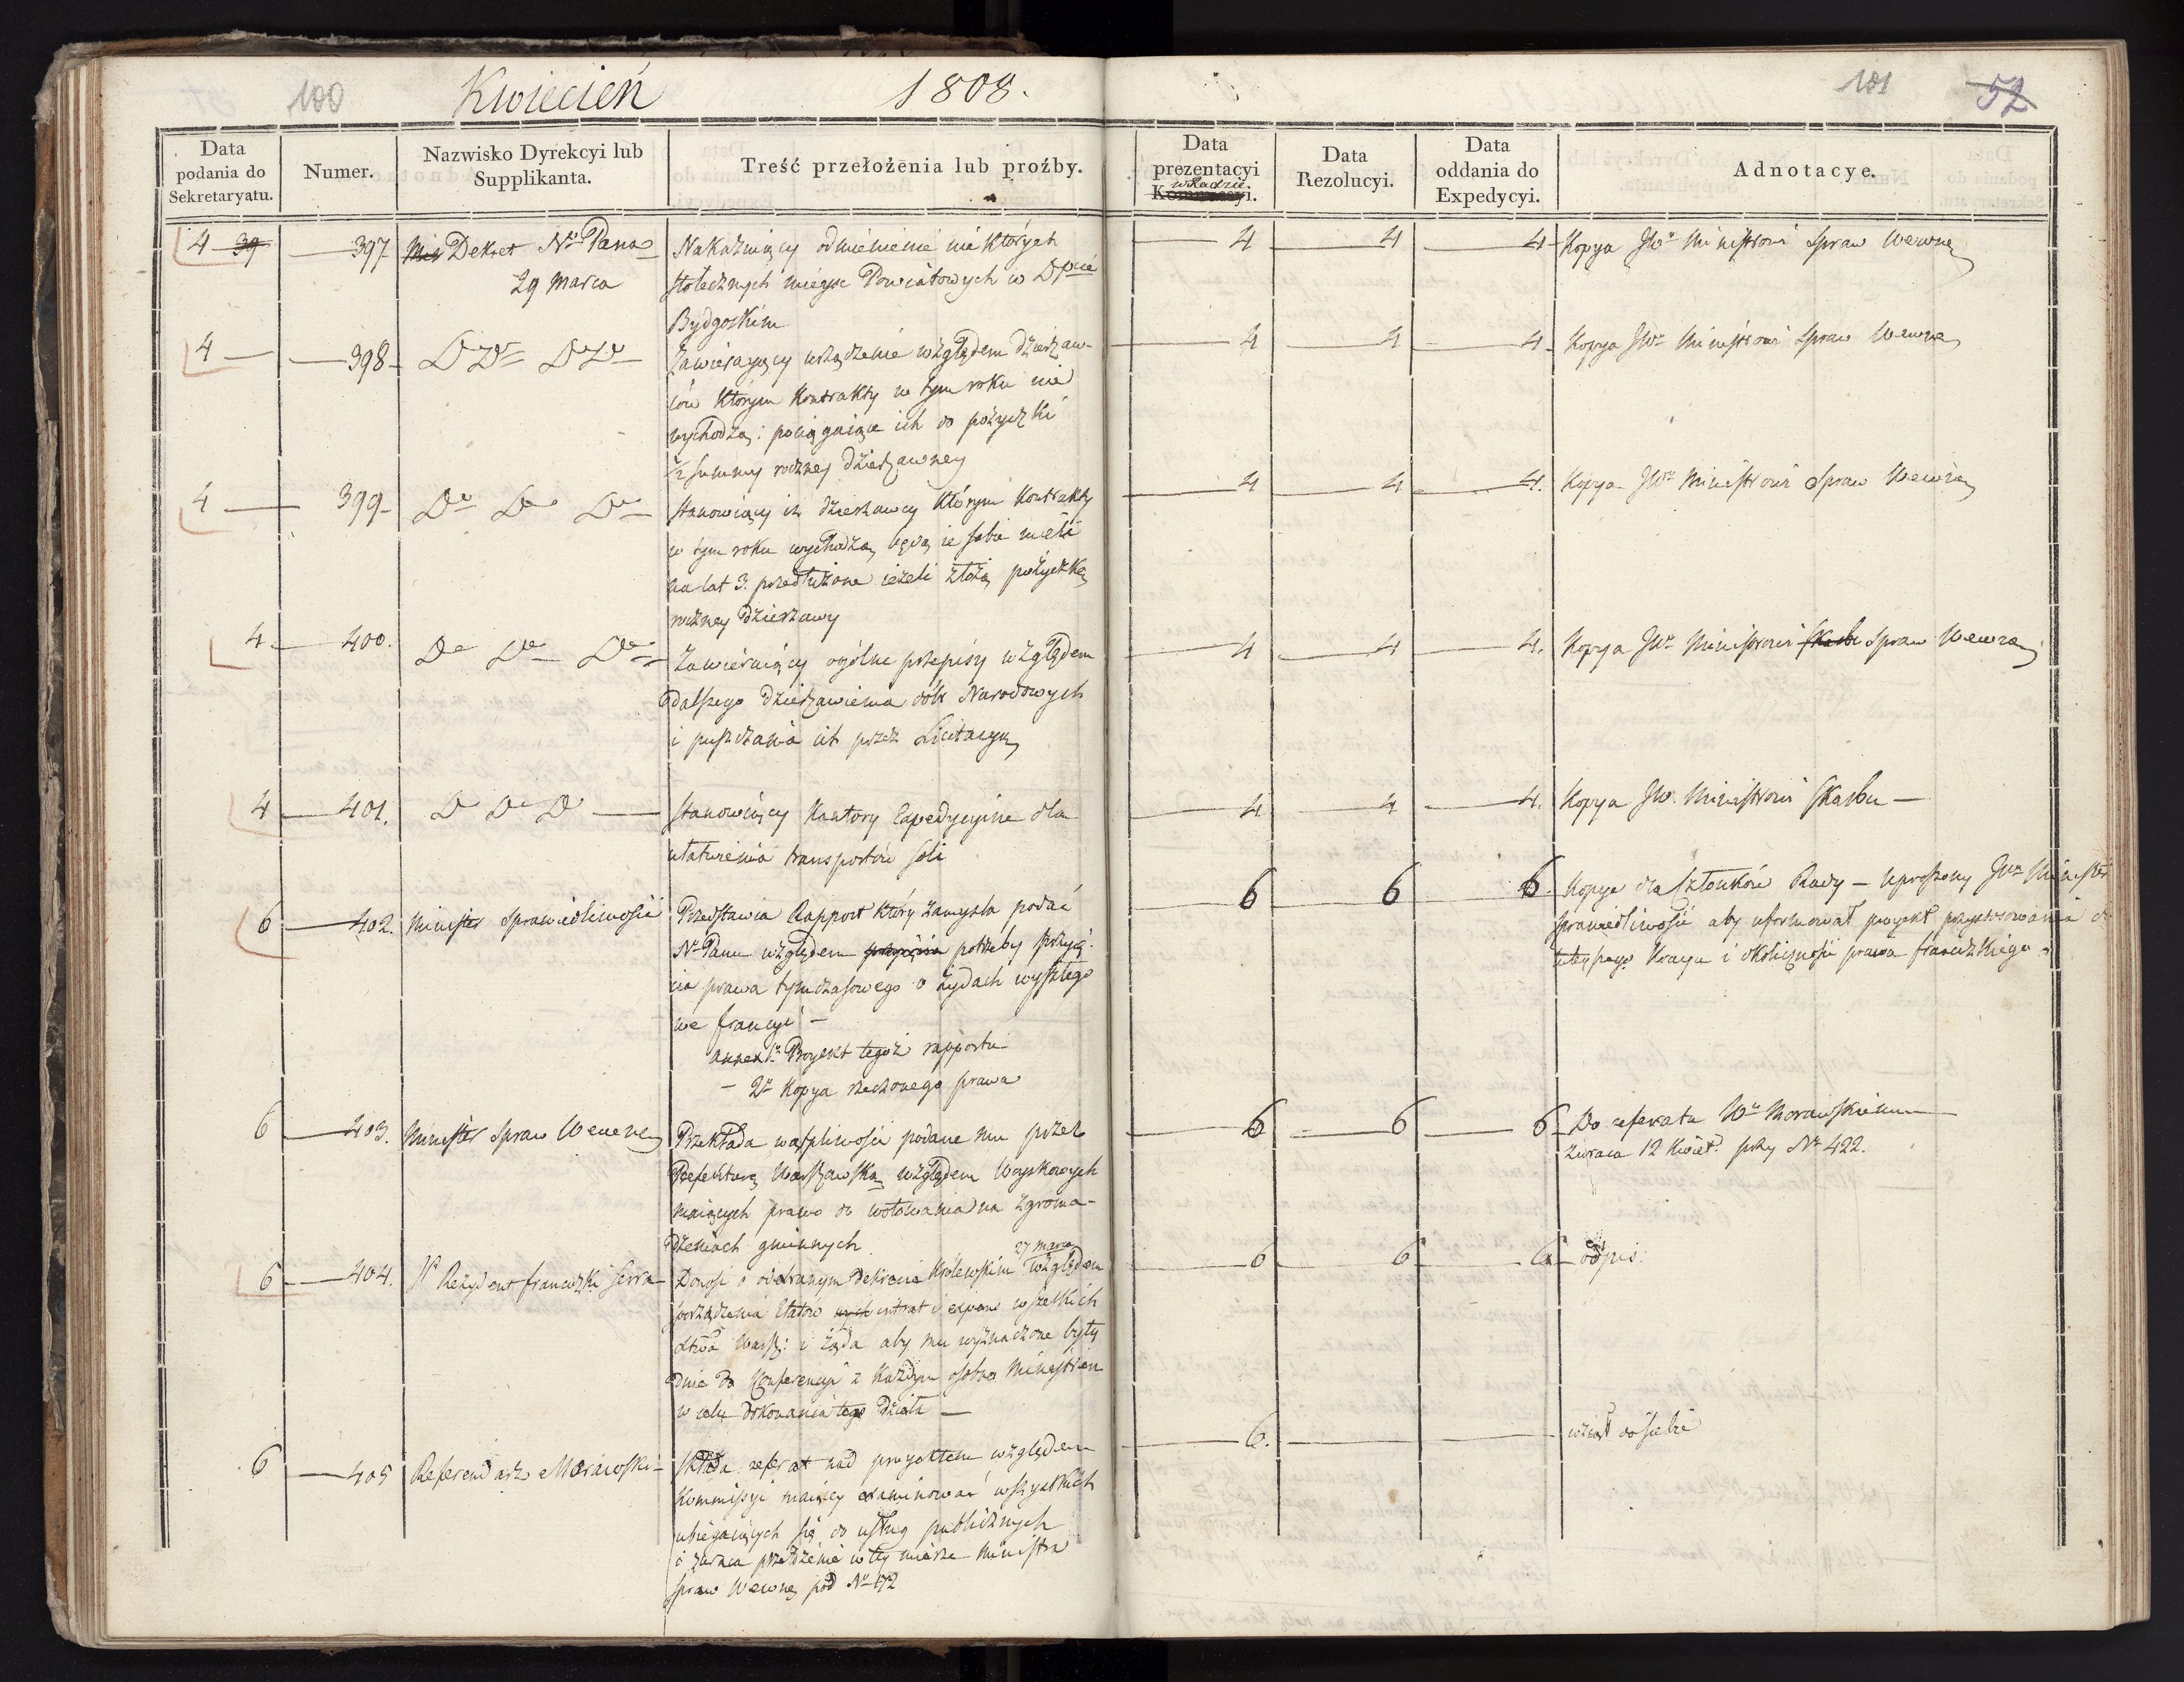 100 Kwiecień 1808. 101 52
Data podania do Sekretaryatu.
Numer.
Nazwisko Dyrekcyi lub Supplikanta.
Treść przełożenia lub proźby.
Data prezentacyi w Radzie. Kommissyi.
Data Rezolucyi.
Data oddania do Expedycyi.
Adnotacye.
4 39 397 Min Dekret Nº Pana
29 Marca
Nakazuiący odmienienie niektórych
stołecznych mieysc Powiatowych w Dpcie
Bydgoskim
4 4 4 Kopya JWu Ministrowi Spraw Wewnę
4 398 Do Do Do Do
Zawieraiący urządzenie względem dzierzaw-
ców którym kontrakty w tym roku nie
wychodzą; pociągaiące ich do pożyczki
1/2 summy roczney dzierzawney
4 4 4 Kopya JWu Ministrowi Spraw Wewnę
4 399 Do Do Do
Stanowiący iż dzierzawcy którym kontrakty
w tym roku wychodzą będą ie sobie mieli
na lat 3. przedłużone ieżeli złożą pożyczkę
roczney dzierzawy
4 4 4. Kopya JWu Ministrowi Spraw Wewnę
4 400. Do Do Do
Zawieraiący ogólne przepisy względem
dalszego dzierzawienia dóbr Narodowych
i puszczania ich przez Licitacyą
4 4 4. Kopya JWu Ministrowi Skarbu Spraw Wewnę
4 401. Do Do Do
Stanowiący Kantory Expedycyine dla
ułatwienia transportów soli
4 4 4. Kopya JW. Ministrowi Skarbu —
6 402. Minister Sprawiedliwości
Przedstawia Rapport który zamyśla podać
N. Panu względem przyięcia potrzeby przyię-
cia prawa tymczasowego o żydach wyszłego
we Francyi —
annex 1o Proyekt tegoż rapportu
— 2o Kopya rzeczonego prawa
6 6 6. Kopye dla Członków Rady — Uproszony JW. Minister
Sprawiedliwości aby uformował proyekt przystosowania do
tuteyszego Kraiu i okoliczności prawa francuzkiego.
6 403. Minister Spraw Wewnę
Przekłada wątpliwości podane mu przez
Prefekturę Warszawską względem Woyskowych
maiących prawo do wotowania na zgroma-
dzeniach gminnych.
6 6 6 Do referatu Wu Morawskiemu
zwraca 12 Kwiet: przy No 422.
6 404. JP Rezydent francuzki Serra
Donosi o odebranym dekrecie Królewskim 27 marca względem
porządzenia Etatów intrat i expens wszelkich
Xtwa Warsz: i żąda aby mu wyznaczone były
dnie do Konferencyi z każdym osobno Ministrem
w celu dokonania tego dzieła —
6 6 6 odpis:
6 405 Referendarz Morawski
Składa referat nad proyektem względem
Kommissyi maiącey examinować wszystkich
ubiegaiących się do usług publicznych
i zwraca przełożenie w tey mierze Ministra
Spraw Wewnę pod No 172
6. wziął do siebie